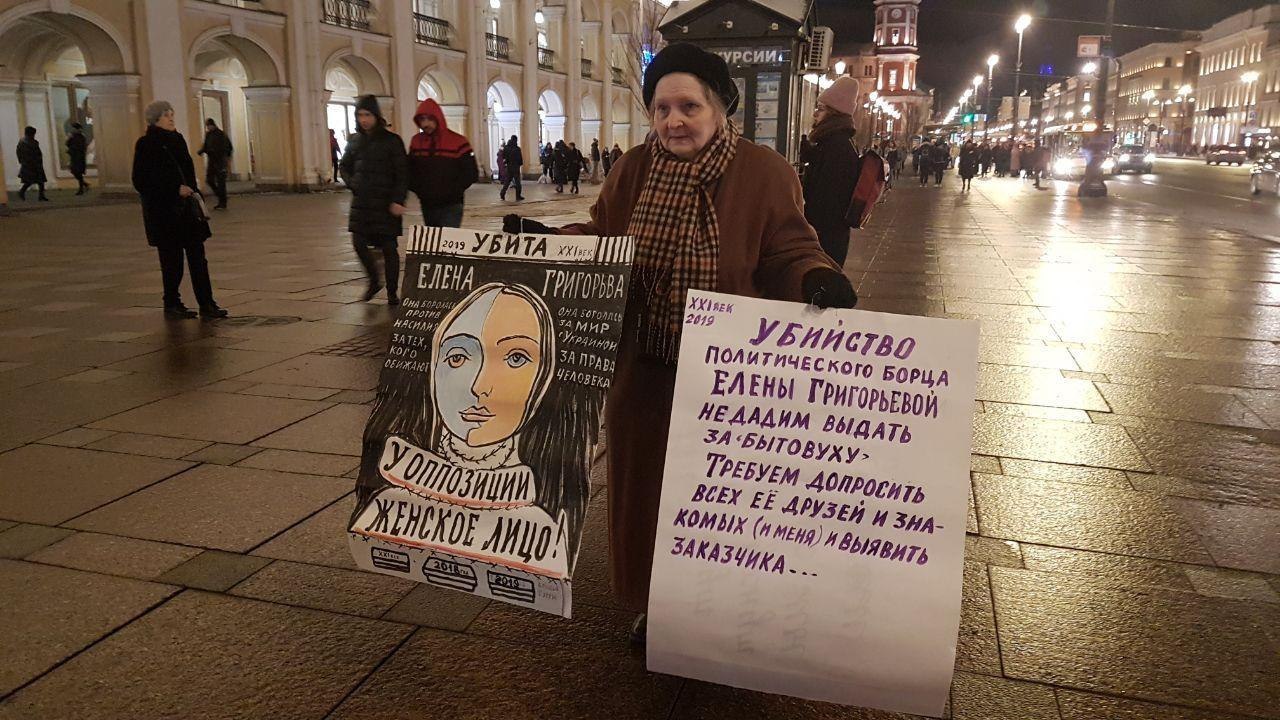 КУРСИИ
2019 УБИТА XXI ВЕК
ЕЛЕНА ГРИГОРЬВА
ОНА БОРОЛАСЬ
ПРОТИВ
НАСИЛИЯ
ЗА ТЕХ,
КОГО
ОБИЖАЮТ
ОНА БОРОЛАСЬ
ЗА МИР
С УКРАИНОЙ,
ЗА ПРАВА
ЧЕЛОВЕКА
У ОППОЗИЦИИ
ЖЕНСКОЕ ЛИЦО!
XXI ВЕК
2018
2019
XXI ВЕК
2019
УБИЙСТВО
ПОЛИТИЧЕСКОГО БОРЦА
ЕЛЕНЫ ГРИГОРЬЕВОЙ
НЕ ДАДИМ ВЫДАТЬ
ЗА «БЫТОВУХУ»
ТРЕБУЕМ ДОПРОСИТЬ
ВСЕХ ЕЁ ДРУЗЕЙ И ЗНА-
КОМЫХ (И МЕНЯ) И ВЫЯВИТЬ
ЗАКАЗЧИКА...